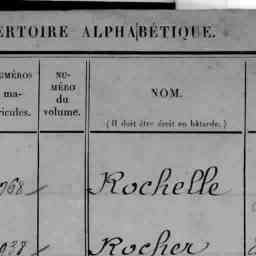 ERTOIRE ALPHABÉTIQUE.
UMÉROS
ma-
ricules.
NU-
MÉRO
du
volume.
NOM.
( Il doit être écrit en bâtarde. )
968 Rochelle
938 Rocher